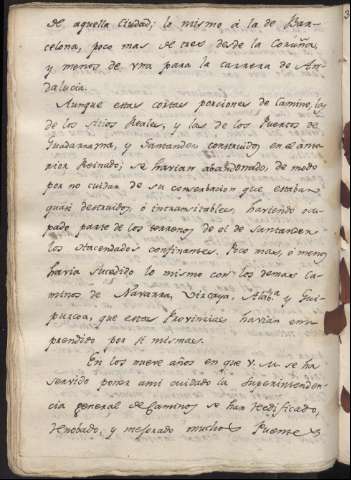 de aquella Ciudad, lo mismo á la de Bar-
celona, poco mas de tres desde la Coruña,
y menos de vna para la carrera de An-
dalucia.
Aunque estas cortas porciones de Camino, las
de los Sitios Reales, y las de los Puertos de
Guadarrama, y Santander construidos en el ante-
rior Reinado, se havian abandonado, de modo
por no cuidar de su conserbacion que estaban
quasi destruidos, ó intransitables, haviendo ocu-
pado parte de los terrenos de el de Santander
los Hacendados confinantes. Poco mas, ó menos
havia sucedido lo mismo con los demas Ca-
minos de Navarra, Vizcaya, Alaba y Gui-
puzcoa, que estas Provincias havian em-
prendido por si mismas.
En los nueve años en que V. M. se ha
servido poner á mi cuidado la Superintenden-
cia general de Caminos se han reedificado,
renobado, y mejorado muchos Puentes